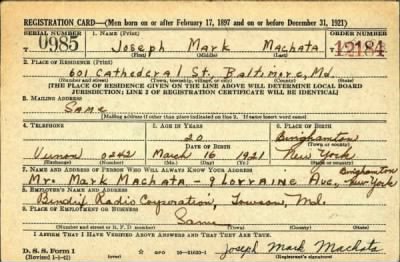 REGISTRATION CARD—(Men born on or after February 17, 1897 and on or before December 31, 1921)
SERIAL NUMBER 1. NAME (Print) ORDER NUMBER
T 0985 Joseph Mark Machata T 12184
(First) (Middle) (Last)
2. PLACE OF RESIDENCE (Print)
601 Cathederal St. Baltimore, Md.
(Number and street) (Town, township, village, or city) (County) (State)
[THE PLACE OF RESIDENCE GIVEN ON THE LINE ABOVE WILL DETERMINE LOCAL BOARD
JURISDICTION; LINE 2 OF REGISTRATION CERTIFICATE WILL BE IDENTICAL]
3. MAILING ADDRESS
Same
[Mailing address if other than place indicated on line 2. If same insert word same]
4. TELEPHONE 5. AGE IN YEARS 6. PLACE OF BIRTH
20 Binghamton
DATE OF BIRTH (Town or county)
Vernon 0242 March 16 1921 New York
(Exchange) (Number) (Mo.) (Day) (Yr.) (State or country)
7. NAME AND ADDRESS OF PERSON WHO WILL ALWAYS KNOW YOUR ADDRESS Binghamton
Mr. Mark Machata - 9 Lorraine Ave, New York
8. EMPLOYER'S NAME AND ADDRESS
Bendix Radio Corporation, Towson, Md.
9. PLACE OF EMPLOYMENT OR BUSINESS
Same
(Number and street or R. F. D. number) (Town) (County) (State)
I AFFIRM THAT I HAVE VERIFIED ABOVE ANSWERS AND THAT THEY ARE TRUE.
D. S. S. Form 1 Joseph Mark Machata
(Revised 1-1-42) (over) (Registrant's signature)